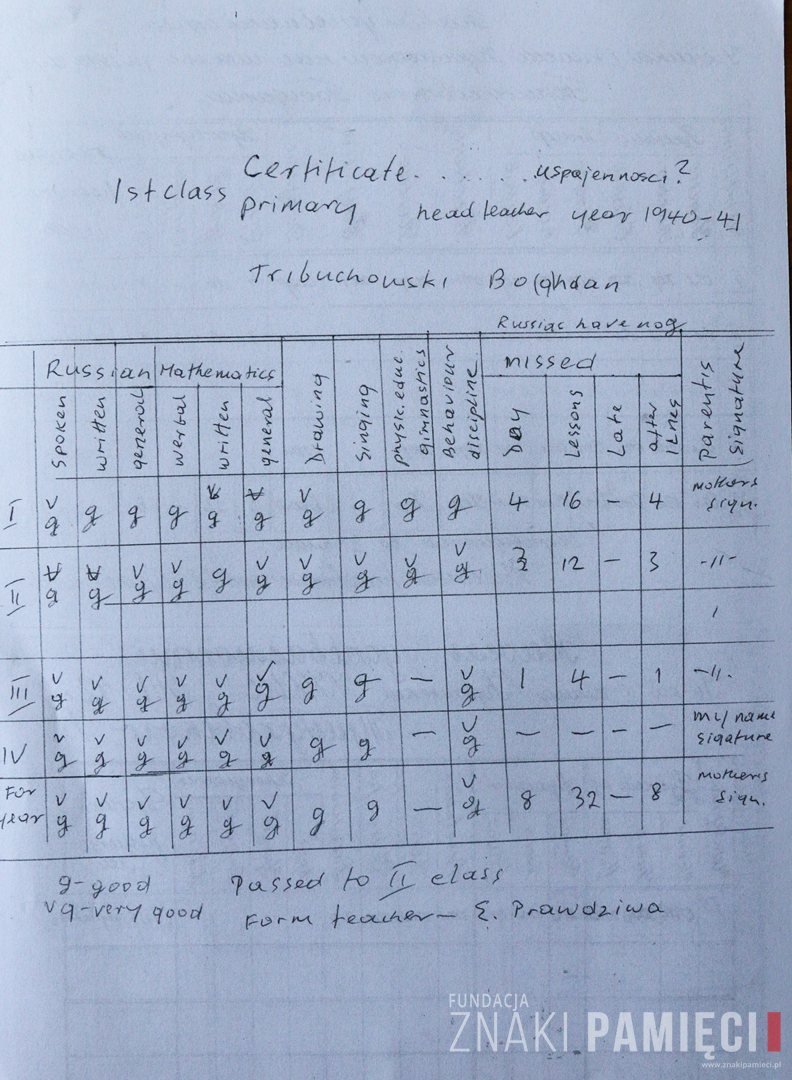 Certificate. . . . . . . uspajennosci?
1st class primary head teacher year 1940-41
Tribuchowski Bo(g)hdan
Russias have no g
Russian Mathematics Drawing Singing physic. educ. gimnastics Behaviour discipline missed Parentis signature
Spoken written general werbal written general Day Lessons Late after Ilnes
I vg g g g g vg g g g 4 16 - 4 mothers sign.
II g vg vg g vg vg vg vg vg 12 - 3 -11-
III vg vg vg vg vg vg g g - vg 1 4 - 1 -11.
IV vg vg vg vg vg vg g g - vg - - - - my name sigature
For year vg vg vg vg vg vg g g - vg 8 32 - 8 mothers sign.
g-good Passed to II class
vg-very good Form teacher - E. Prawdziwa
FUNDACJA
ZNAKI PAMIĘCI
www.znakipamieci.pl